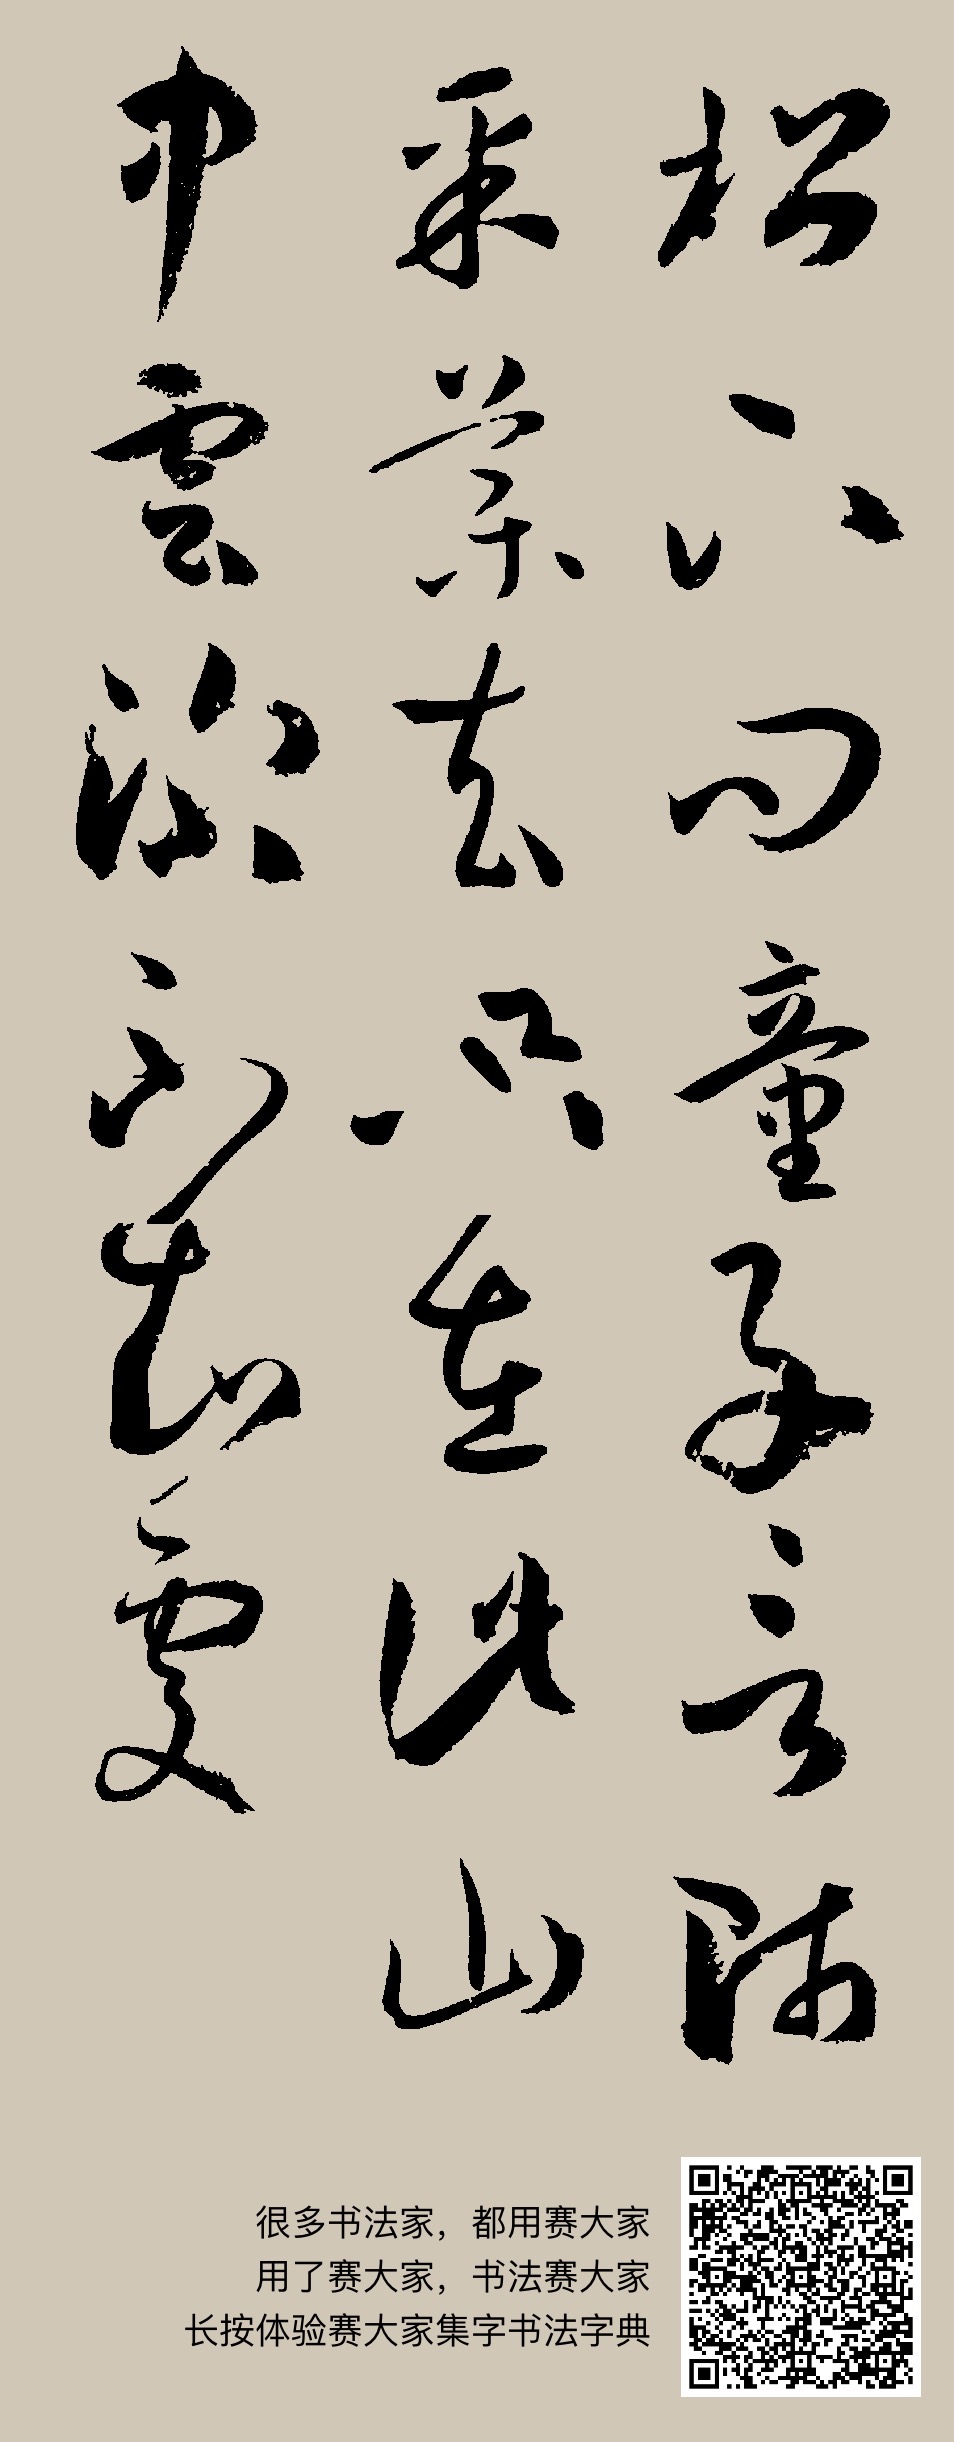 松下问童子言師
采藥去只在此山
中雲深不知處
很多书法家，都用赛大家
用了赛大家，书法赛大家
长按体验赛大家集字书法字典